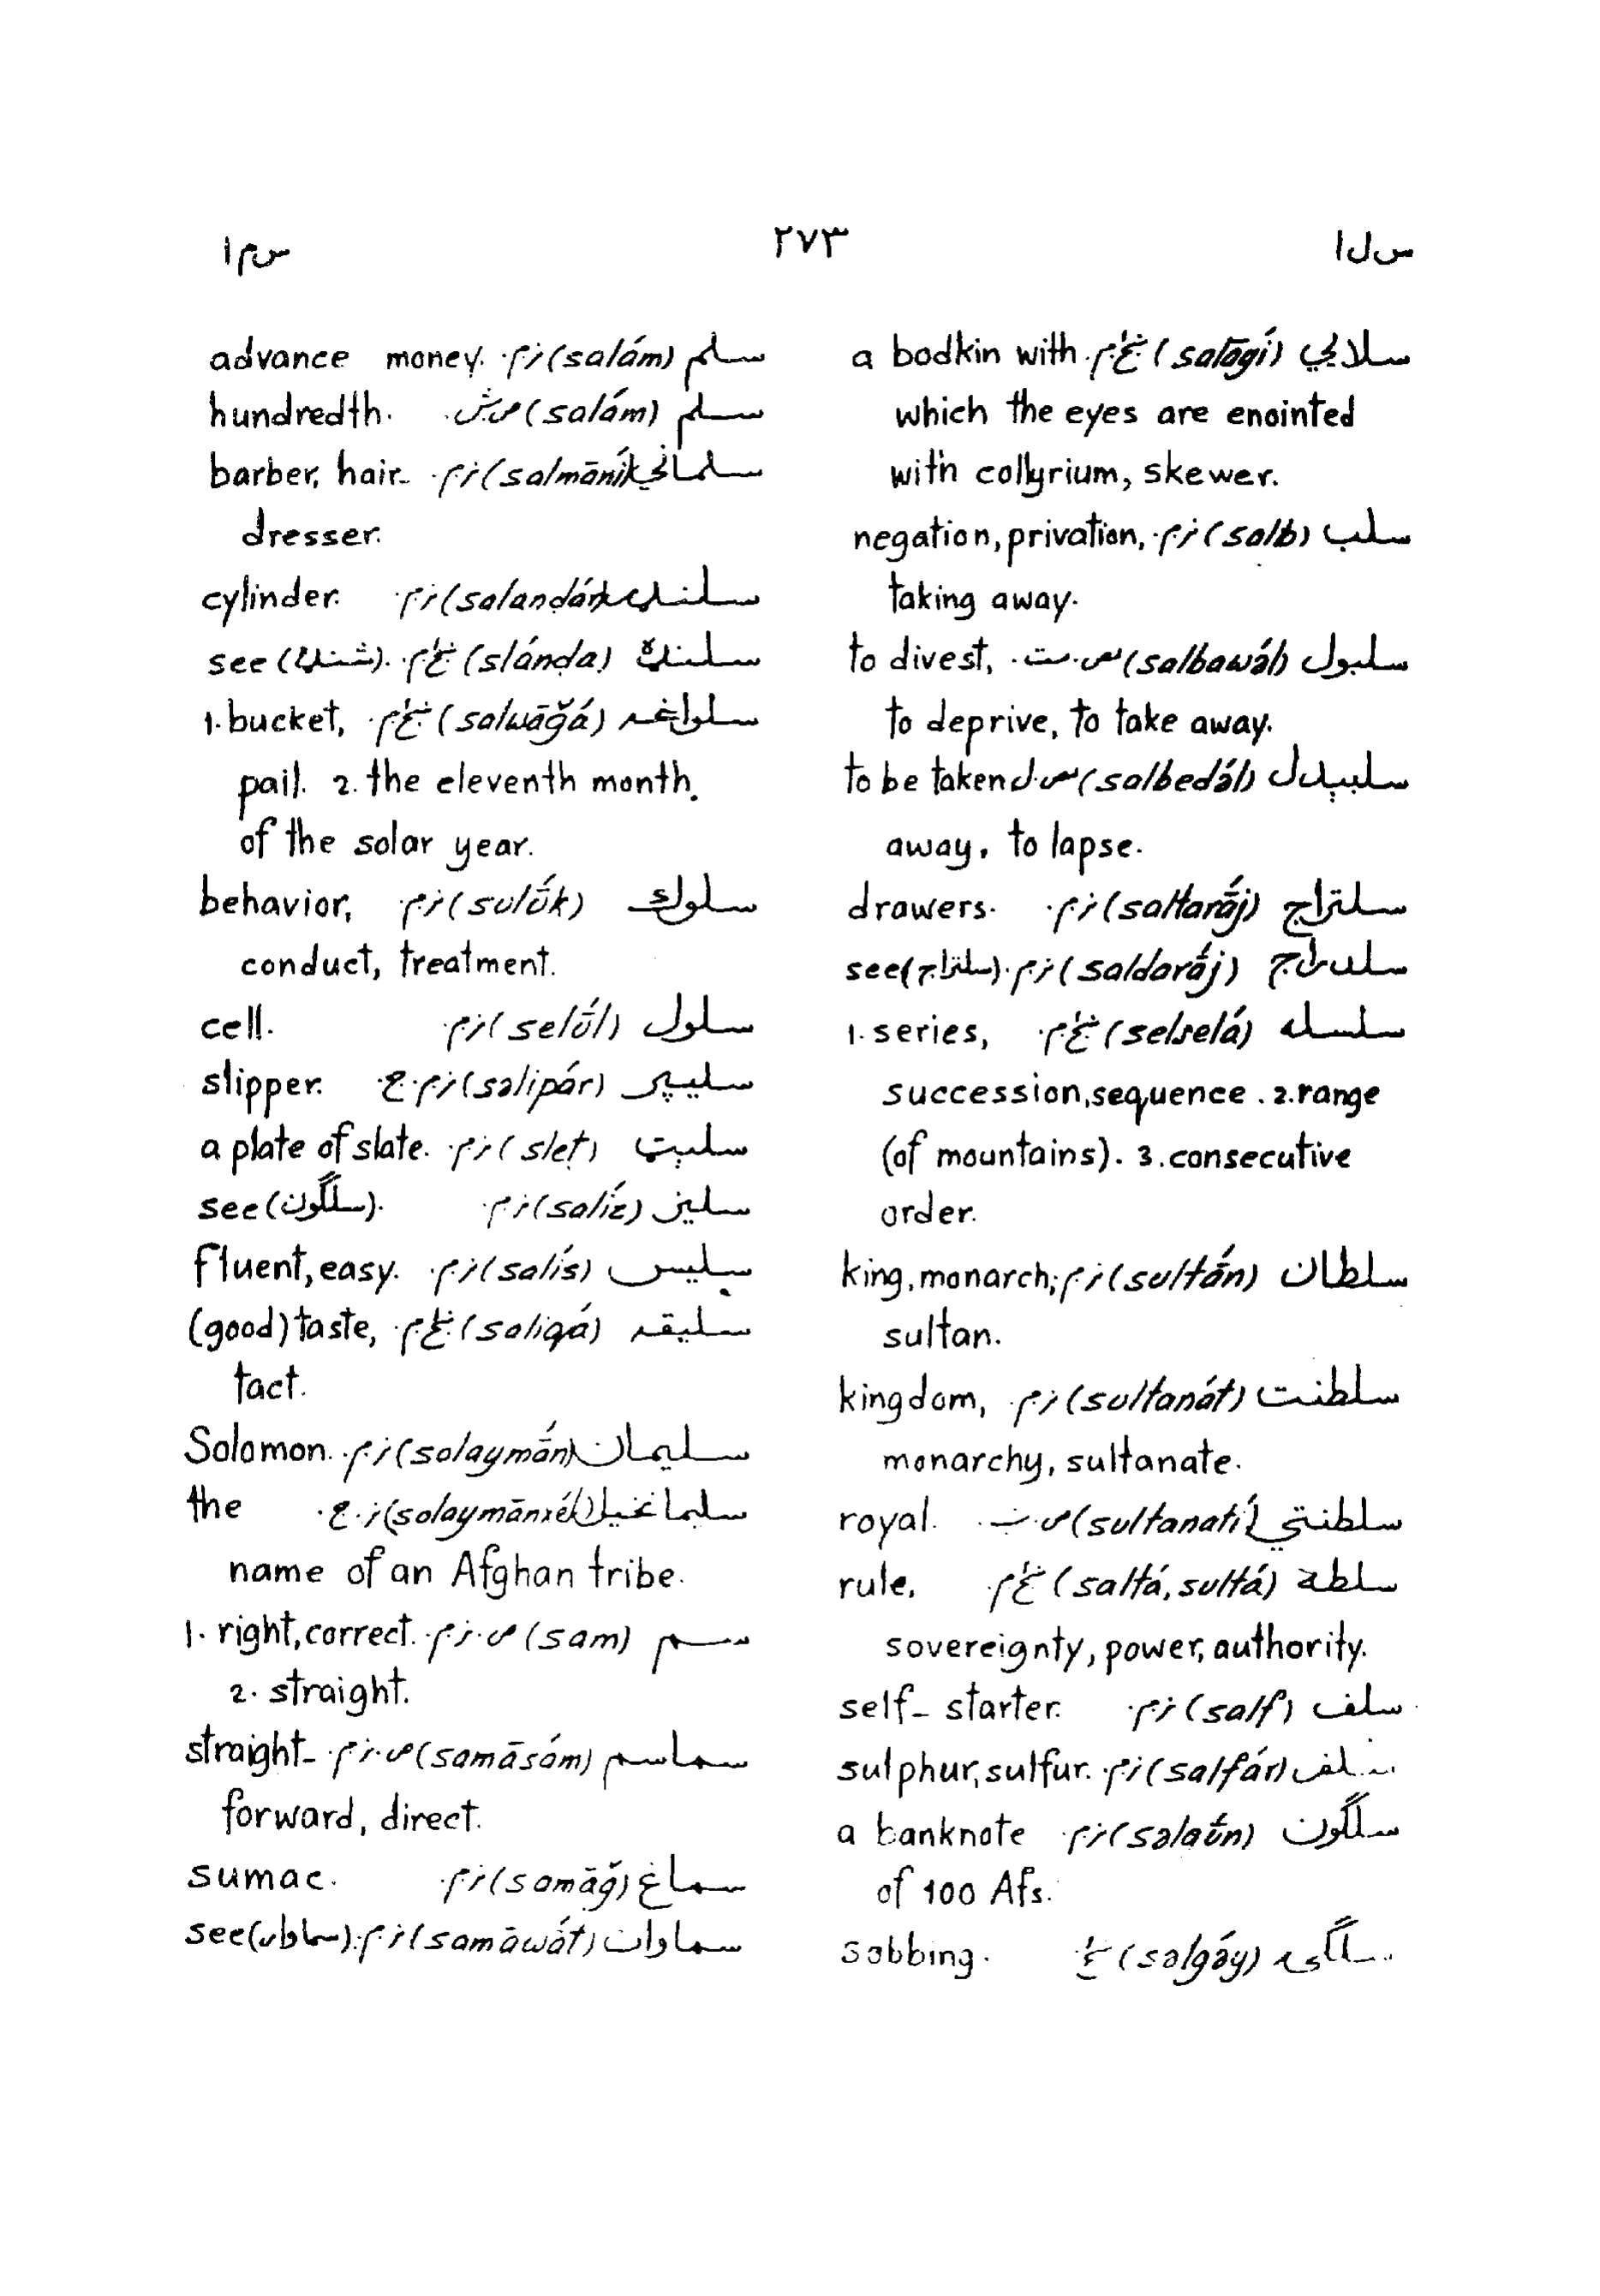 س ل ا ۲۷۳ س م ا
سلايي (salāgí) غ ځ م. a bodkin with
which the eyes are enointed
with collyrium, skewer.
سلب (salb) ن م. negation, privation,
taking away.
سلبول (salbawə́l) ص. ست. to divest,
to deprive, to take away.
سلبېدل (salbedə́l) ص. ل to be taken
away, to lapse.
سلتراج (saltarā́j) ن م. drawers.
سلدراج (saldarā́j) ن م. see (سلتراج).
سلسله (selselá) غ ځ م. 1. series,
succession, sequence. 2. range
(of mountains). 3. consecutive
order.
سلطان (sultā́n) ن م. king, monarch;
sultan.
سلطنت (sultanát) ن م. kingdom,
monarchy, sultanate.
سلطنتي (sultanatí) ص. ب. royal.
سلطه (saltá, sultá) غ ځ م rule,
sovereignty, power, authority.
سلف (salf) ن م. self-starter.
(salfár) ن م. sulphur, sulfur.
سلګون (salgū́n) ن م. a banknote
of 100 Afs.
سلګۍ (salgə́y) sobbing.
سلم (salám) ن م. advance money.
سلم (salám) ص. ش. hundredth.
سلماني (salmāní) ن م. barber, hair-
dresser.
(salanḍár) ن م. cylinder.
سلنډه (slánḍa) غ ځ م. see (شنډه).
سلواغه (salwāğá) غ ځ م. 1. bucket,
pail. 2. the eleventh month
of the solar year.
سلوک (sulū́k) ن م. behavior,
conduct, treatment.
سلول (selū́l) ن م. cell.
سليپر (salipár) ن م. ج. slipper.
سلېټ (sleṭ) ن م. a plate of slate.
سليز (salíz) ن م. see (سلګون).
سليس (salís) ن م. fluent, easy.
سليقه (saliqá) غ ځ م. (good) taste,
tact.
سليمان (solaymā́n) ن م. Solomon.
سليمانخيل (solaymānxél) ن. ج. the
name of an Afghan tribe.
سم (sam) ص. ن م. 1. right, correct.
2. straight.
سماسم (samāsám) ص. ن م. straight-
forward, direct.
سماغ (samā́ğ) ن م. sumac.
سماوات (samāwā́t) ن م. see (سماوار).